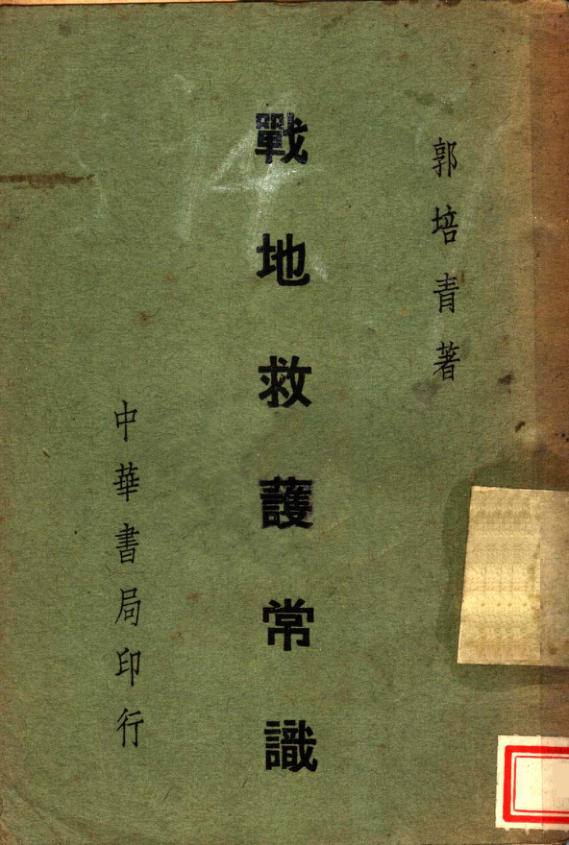 郭培青著
戰地救護常識
中華書局印行